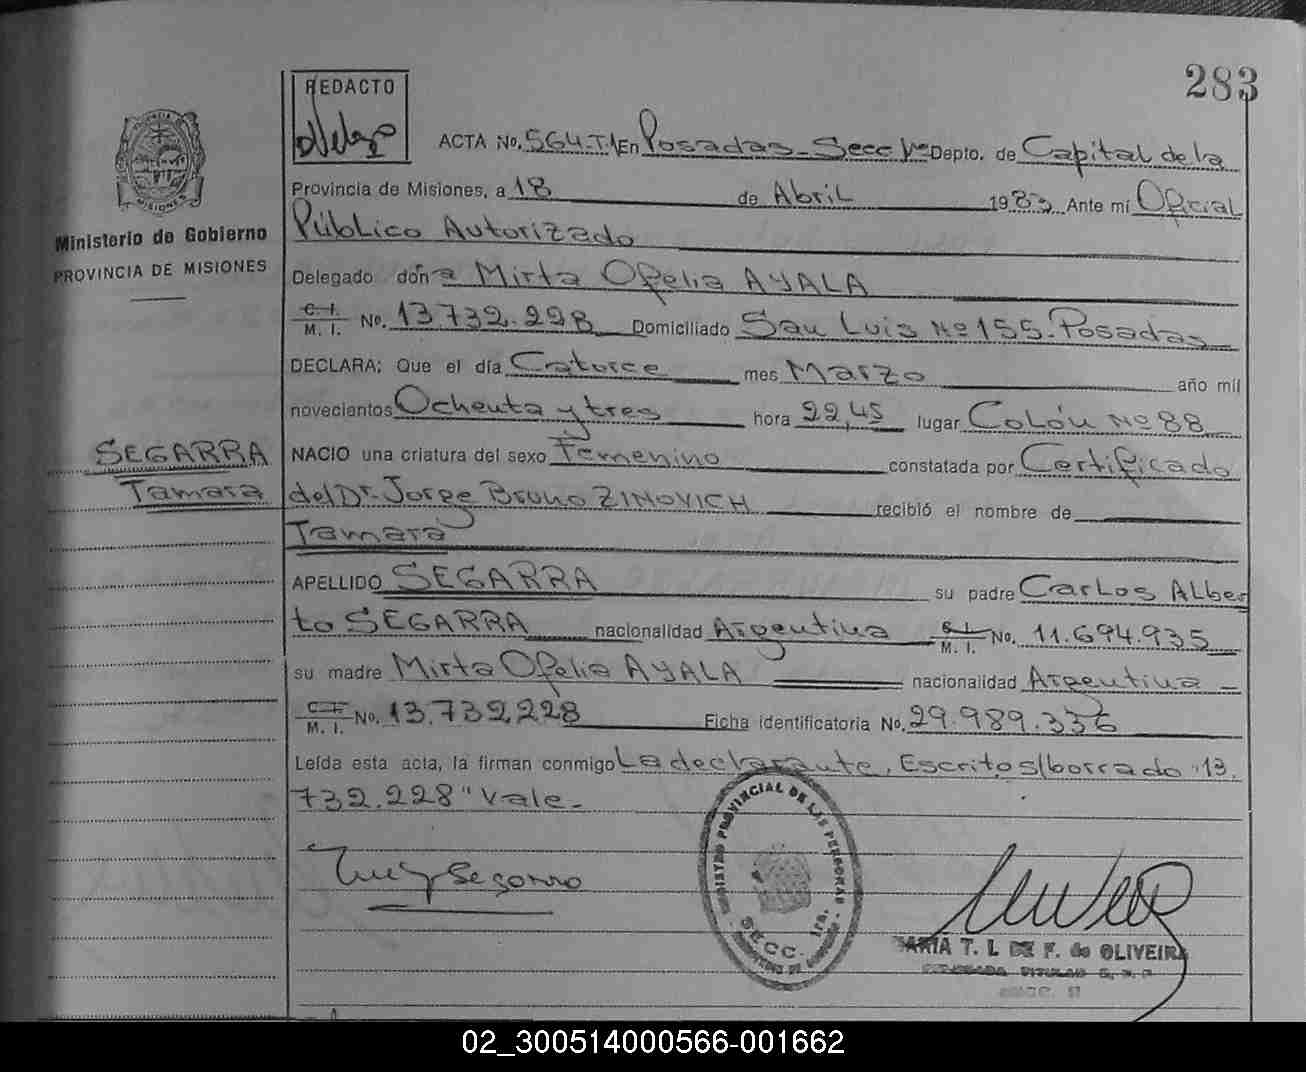 283
REDACTO
ACTA No. 564-T-1 En Posadas-Secc 1ra Depto. de Capital de la
Provincia de Misiones, a 18 de Abril 1983 Ante mí Oficial
Público Autorizado
Ministerio de Gobierno
PROVINCIA DE MISIONES
Delegado doña Mirta Ofelia AYALA
C. I.
M. I. No. 13.732.228 Domiciliado San Luis Nº 155-Posadas
DECLARA: Que el día Catorce mes Marzo año mil
noveciantos Ochenta y tres hora 22,45 lugar Colón Nº 88
SEGARRA
Tamara
NACIO una criatura del sexo Femenino constatada por Certificado
del Dr. Jorge Bruno ZINOVICH recibió el nombre de
Tamara
APELLIDO SEGARRA su padre Carlos Alber
to SEGARRA nacionalidad Argentina C. I.
M. I. No. 11.694.935
su madre Mirta Ofelia AYALA nacionalidad Argentina -
C. I.
M. I. No. 13.732.228 Ficha identificatoria No. 29.989.336
Leída esta acta, la firman conmigo La declarante. Escrito s/borrado "13.
732.228" Vale-
Segarra
REGISTRO PROVINCIAL DE LAS PERSONAS
SECC. 1ra.
MARIA T. L. DE F. de OLIVEIRA
02_300514000566-001662